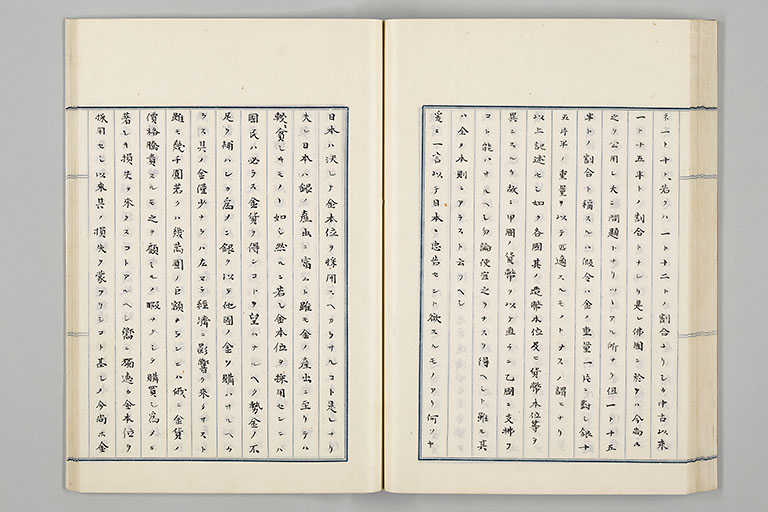 ネ一ト十、若クハ一ト十二トノ割合ナリシモ中古以來
一ト十五半トノ割合トナレリ是レ佛國ニ於テハ今尚ホ
之ヲ公用シ大ニ問題トナリツヽアル所ナリ但一ト十五
半トノ割合ト稱スルハ假令ハ金ノ重量一片ニ對シ銀十
五片半ノ重量ヲ以テ匹適スルモノトナスノ謂ヒナリ
以上記述セシ如ク各國其ノ造幣本位及ヒ貨幣本位等ヲ
異ニスルカ故ニ甲國ノ貨幣ヲ以テ直チニ乙國ニ支拂フ
コト能ハサルヘシ勿論便宜之ヲナスヲ得ヘシト雖モ其
ハ金ノ本則ニアラスト云フヘシ
爰ニ一言以テ日本ニ忠告セント欲スルモノアリ何ソヤ
日本ハ決シテ金本位ヲ採用スヘカラサルコト是レナリ
夫レ日本ハ銀ノ産出ニ富ムト雖モ金ノ産出ニ至リテハ
較貧シキモノヽ如シ然ルニ若シ金本位ヲ採用センニハ
國民ハ必ラス金貨ヲ得ンコトヲ望ムナルヘク勢金ノ不
足ヲ補ハンカ爲メニ銀ヲ以テ他國ノ金ヲ購ハサルヘカ
ラス其ノ金僅少ナラハ左マテ經濟ニ影響ヲ來タサスト
雖モ幾千圓若クハ幾萬圓ノ巨額ナランニハ俄ニ金貨ノ
價格騰貴スルモ之ヲ顧ミルノ暇ナクシテ購買シ爲メニ
著シキ損失ヲ來タスコトアルヘシ嚮ニ獨逸カ金本位ヲ
採用セシ以來其ノ損失ヲ蒙フリシコト甚シク今尚ホ金